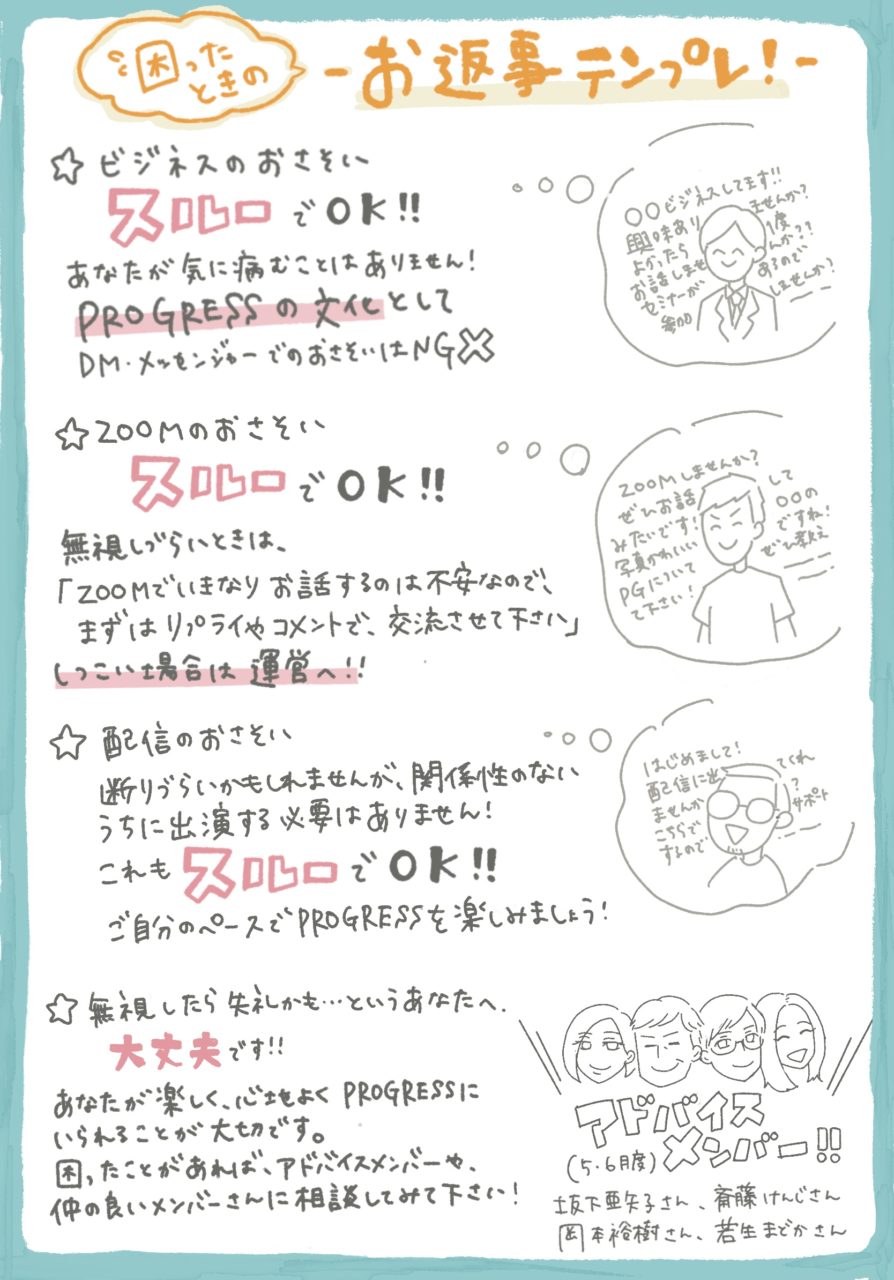 困った
ときの
-お返事テンプレ!-
☆ ビジネスのおさそい
スルーでOK!!
あなたが気に病むことはありません!
PROGRESSの文化として
DM・メッセンジャーでのおさそいはNG✕
〇〇ビジネスしてます!!
興味あり
ませんか?
よかったら
1度
お話しませ
んか??
セミナーが
あるので
参加
しませんか?
☆ ZOOMのおさそい
スルーでOK!!
無視しづらいときは、
「ZOOMでいきなりお話するのは不安なので、
まずはリプライやコメントで、交流させて下さい」
しつこい場合は運営へ!!
ZOOMしませんか?
ぜひお話
して
みたいです!
〇〇の
写真かわいい
ですね!
PGについて
ぜひ教え
て下さい!
☆ 配信のおさそい
断りづらいかもしれませんが、関係性のない
うちに出演する必要はありません!
これもスルーでOK!!
ご自分のペースでPROGRESSを楽しみましょう!
はじめまして!
配信に出
てくれ
ませんか
?
こちらで
サポート
するので
☆ 無視したら失礼かも…というあなたへ.
大丈夫です!!
あなたが楽しく、心地よくPROGRESSに
いられることが大切です。
困ったことがあれば、アドバイスメンバーや、
仲の良いメンバーさんに相談してみて下さい!
アドバイス
メンバー!!
(5・6月度)
坂下亜矢子さん、斉藤けんじさん
岡本裕樹さん、若生まどかさん